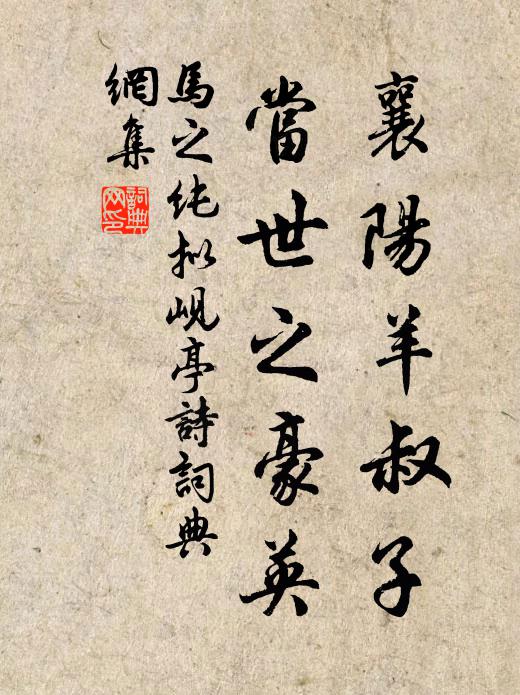 襄陽羊叔子
當世之豪英
馬之純拟峴亭詩詞典
網集
詞典
网印